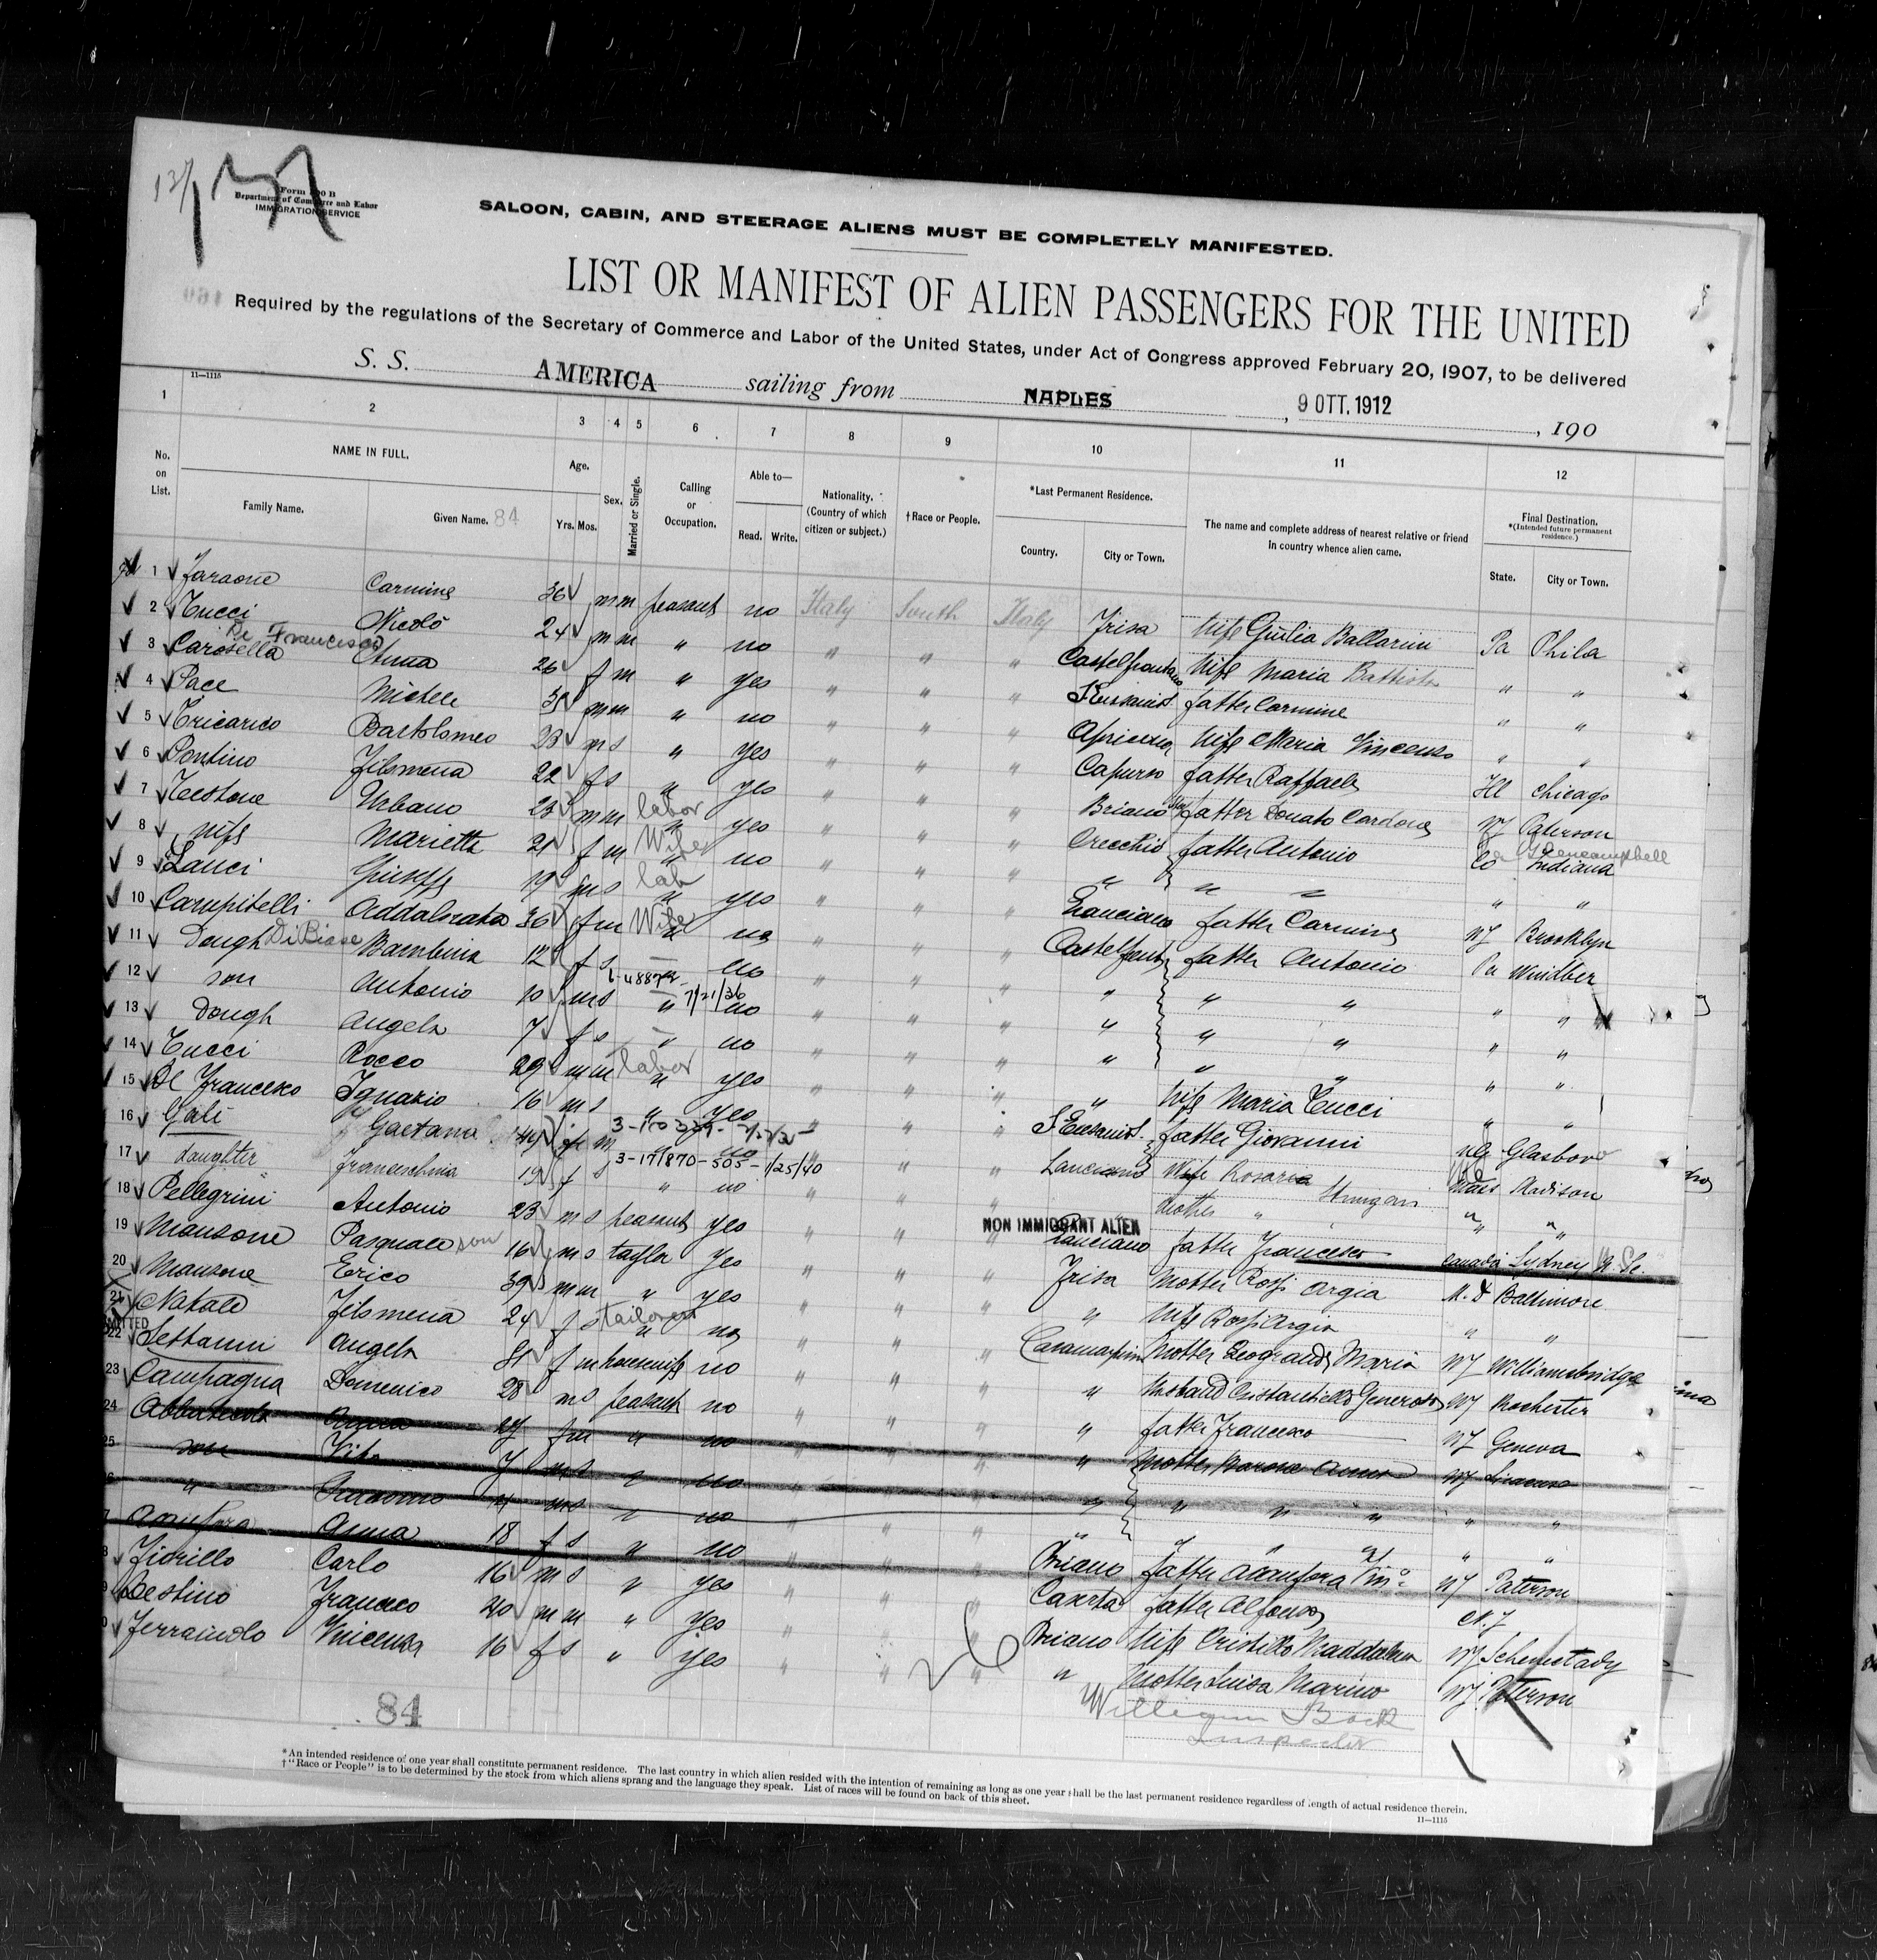 137
Form 500 B
Department of Commerce and Labor
IMMIGRATION SERVICE
SALOON, CABIN, AND STEERAGE ALIENS MUST BE COMPLETELY MANIFESTED.
LIST OR MANIFEST OF ALIEN PASSENGERS FOR THE UNITED
Required by the regulations of the Secretary of Commerce and Labor of the United States, under Act of Congress approved February 20, 1907, to be delivered
S. S. AMERICA sailing from NAPLES, 9 OTT. 1912, 190
11—1115
1 2 3 4 5 6 7 8 9 10 11 12
No. on List. NAME IN FULL. Age. Sex. Married or Single. Calling or Occupation. Able to— Nationality. (Country of which citizen or subject.) †Race or People. *Last Permanent Residence. The name and complete address of nearest relative or friend in country whence alien came. Final Destination. *(Intended future permanent residence.)
Family Name. Given Name. 84 Yrs. Mos. Read. Write. Country. City or Town. State. City or Town.
1 Faraone Carmine 36 m m peasant no Italy South Italy Frisa Wife Giulia Ballarini Pa Phila
2 Tucci Nicolò 24 m m " no " " " Castelfrentano Wife Maria Battista " "
De Francesco
3 Carosella Anna 26 f m " yes " " " father Carmine " "
4 Pace Michele m m " no " " " Wife Maria Vincenza " "
5 Tricarico Bartolomeo 23 m s " yes " " " Capurso father Raffaele Ill Chicago
6 Pontino Filomena 22 f s " yes " " " Briano father Donato Cardone NJ Paterson
7 Testone Urbano 23 m m labor yes " " " Orecchio father Antonio Indiana
8 wife Marietta 21 f m Wife no " " " " " " " "
9 Lanci Giuseppe 19 m s lab yes " " " Lanciano father Carmine NY Brooklyn
10 Campitelli Addalorata 36 f m Wife no " " " Castelfrent father Antonio Pa Windber
11 Dough DiBiase Bambina 12 f s — no " " " " " " " "
12 son Antonio 10 m s " 7/21/36 no " " " " " " " "
13 Dough Angela 7 f s — no " " " " " " " "
14 Tucci Rocco 29 m m labor yes " " " " Wife Maria Tucci " "
15 De Francesco Ignazio 16 m s " yes " " " S. Eusanio father Giovanni Glasboro
16 Gali Gaetana 44 f m no " " " Lanciano Wife Rosaria Mass Madison
17 daughter Franceschina 19 f s 3-171870-505-1/25/40 " no " " " mother " " "
18 Pellegrini Antonio 23 m s peasant yes " " " NON IMMIGRANT ALIEN Lanciano father Francesco Canada Sydney N. Sc.
19 Mansone Pasquale son 16 m s taylor yes " " " Frisa Mother Rossi Argia M. D Baltimore
20 Mansone Erico 39 m m " yes " " " " Wife Rossi Argia " "
21 Natale Filomena 24 f s tailoress no " " " Mother Leogrande Maria NY Williamsbridge
22 Settanni Angela 31 f m housewife no " " " " Husband Generoso NY Rochester
23 Campagna Domenico 28 m s peasant no " " " " father Francesco NY Geneva
24 27 f m " no " " " " Mother Anna NY
25 son Vito 7 m s " no " " " " " "
" Giacomo 4 m s " no " " " " " "
Anna 18 f s " no " " " Briano father NJ Paterson
Fiorillo Carlo 16 m s " yes " " " Caserta father Alfonso N. J
Destino Francesco 40 m m " yes " " " Briano Wife Cristillo Maddalena NY Schenectady
Ferraiuolo Vincenza 16 f s " yes " " " " Mother Luisa Marino NJ Paterson
84
26
William Bock
Inspector
*An intended residence of one year shall constitute permanent residence. The last country in which alien resided with the intention of remaining as long as one year shall be the last permanent residence regardless of length of actual residence therein.
†"Race or People" is to be determined by the stock from which aliens sprang and the language they speak. List of races will be found on back of this sheet.
11—1115